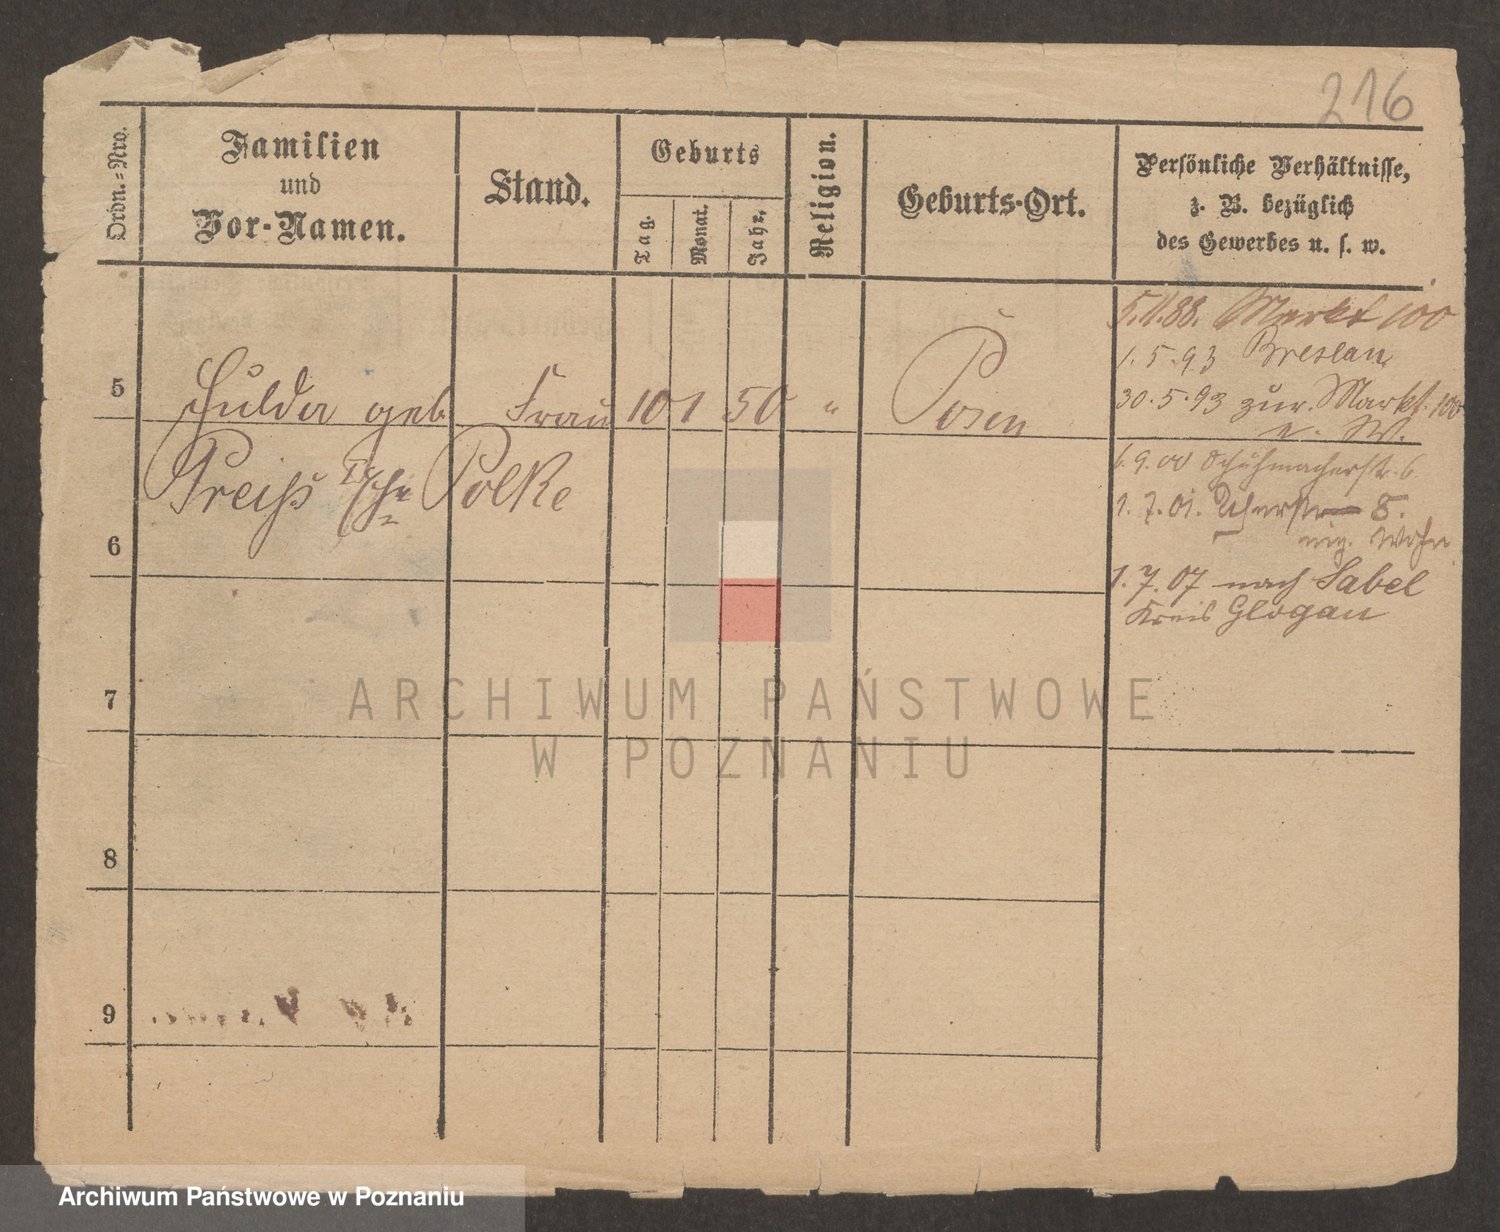 216
Ordn.-Nro.
Familien
und
Vor-Namen.
Stand.
Geburts
Tag.
Monat.
Jahr.
Religion.
Geburts-Ort.
Persönliche Verhältnisse,
z. B. bezüglich
des Gewerbes u. s. w.
5 Hulda geb. Frau 10 1 50 " Posen
Preiß Polke
5.1.88. Markt 100
1.5.93 Breslau
30.5.93 zur. Markt. 100
n. W.
6.9.00 Schuhmacherstr. 6
1.7.01. 8.
Wohn
1.7.07 nach Sabel
Kreis Glogau
6
7
8
9
ARCHIWUM PAŃSTWOWE
W POZNANIU
Archiwum Państwowe w Poznaniu